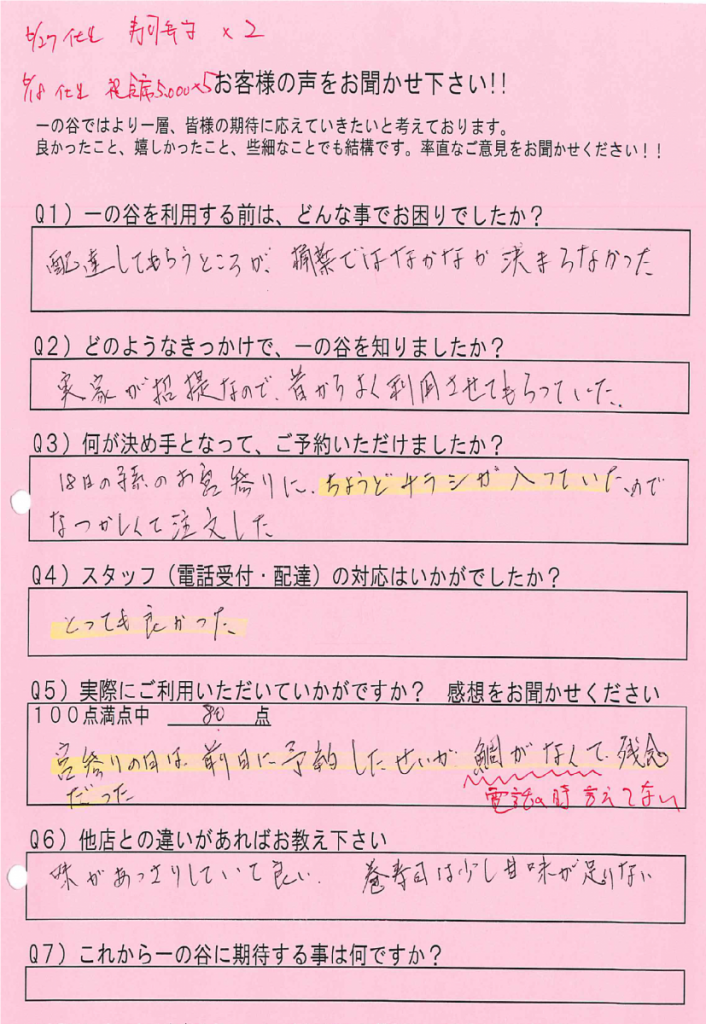 6/27 仕出 寿司弁当 ×2
6/18 仕出 祝会席5,000×5
お客様の声をお聞かせ下さい!!
一の谷ではより一層、皆様の期待に応えていきたいと考えております。
良かったこと、嬉しかったこと、些細なことでも結構です。率直なご意見をお聞かせください！！
Q1）一の谷を利用する前は、どんな事でお困りでしたか？
配達してもらうところが、樟葉ではなかなか決まらなかった
Q2）どのようなきっかけで、一の谷を知りましたか？
実家が招提なので、昔からよく利用させてもらっていた。
Q3）何が決め手となって、ご予約いただけましたか？
18日の孫のお宮参りに、ちょうどチラシが入っていたので
なつかしくて注文した
Q4）スタッフ（電話受付・配達）の対応はいかがでしたか？
とっても良かった。
Q5）実際にご利用いただいていかがですか？　感想をお聞かせください
１００点満点中　80　点
宮参りの日は前日に予約したせいか鯛がなくて残念
だった
電話の時言えてない
Q6）他店との違いがあればお教え下さい
味があっさりしていて良い　巻寿司は少し甘味が足りない
Q7）これから一の谷に期待する事は何ですか？